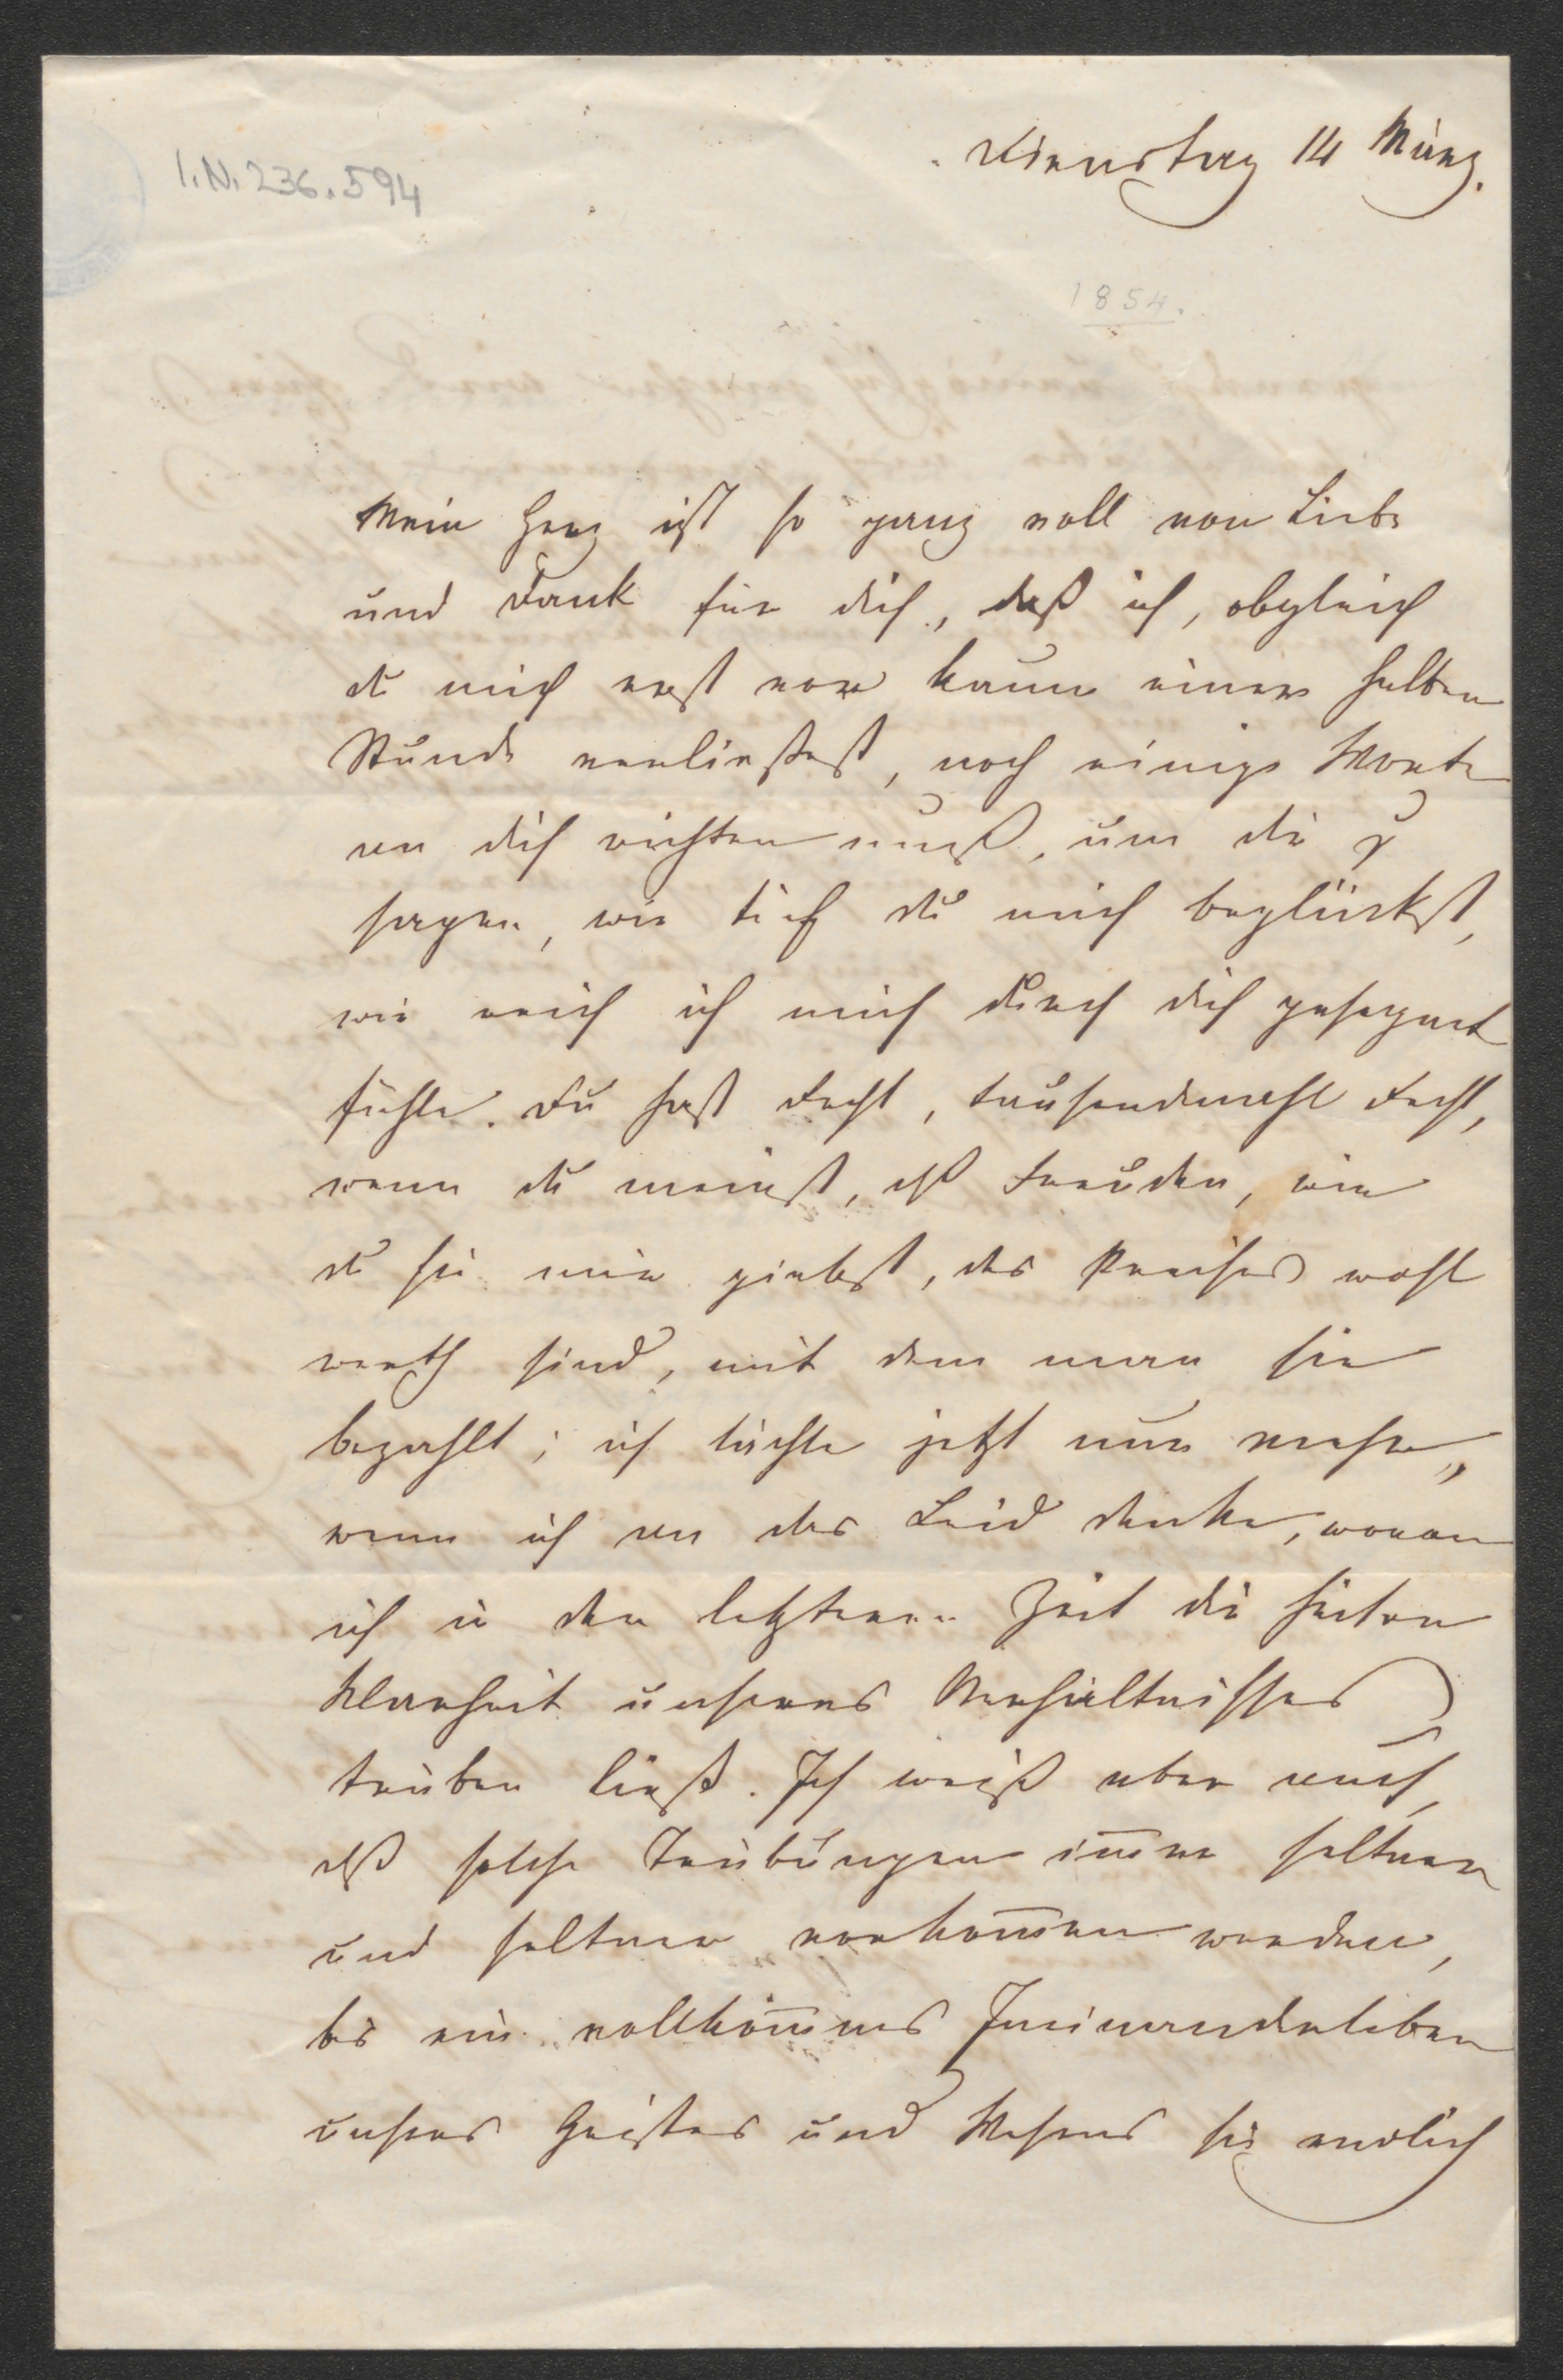 I.N. 236.594
Dienstag 14 März.
1854.
Mein Herz ist so ganz voll von Liebe
und Dank für dich, daß ich, obgleich
du mich erst vor kaum einer halben
Stunde verließest, noch einige Worte
an dich richten muß, um dir zu
sagen, wie tief du mich beglückst,
wie reich ich mich durch dich gesegnet
fühle. Du hast Recht, tausendmahl Recht,
wenn du meinst, daß Freuden, wie
du sie mir giebst, des Preises wohl
werth sind, mit dem man sie
bezahlt; ich lächle jetzt nur mehr,
wenn ich an das Leid denke, woran
ich in der letzteren Zeit die heitere
Klarheit unseres Verhältnisses
trüben ließ. Ich weiß aber auch,
daß solche Trübungen im̅er seltner
und seltner vorkom̅en werden,
bis ein vollkom̅nes Ineinanderleben
unseres Geistes und Wesens sie endlich